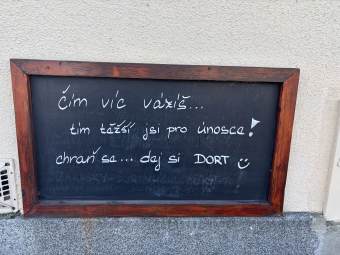 čím víc vážíš...
tím těžší jsi pro únosce!
chraň se... dej si DORT ☺